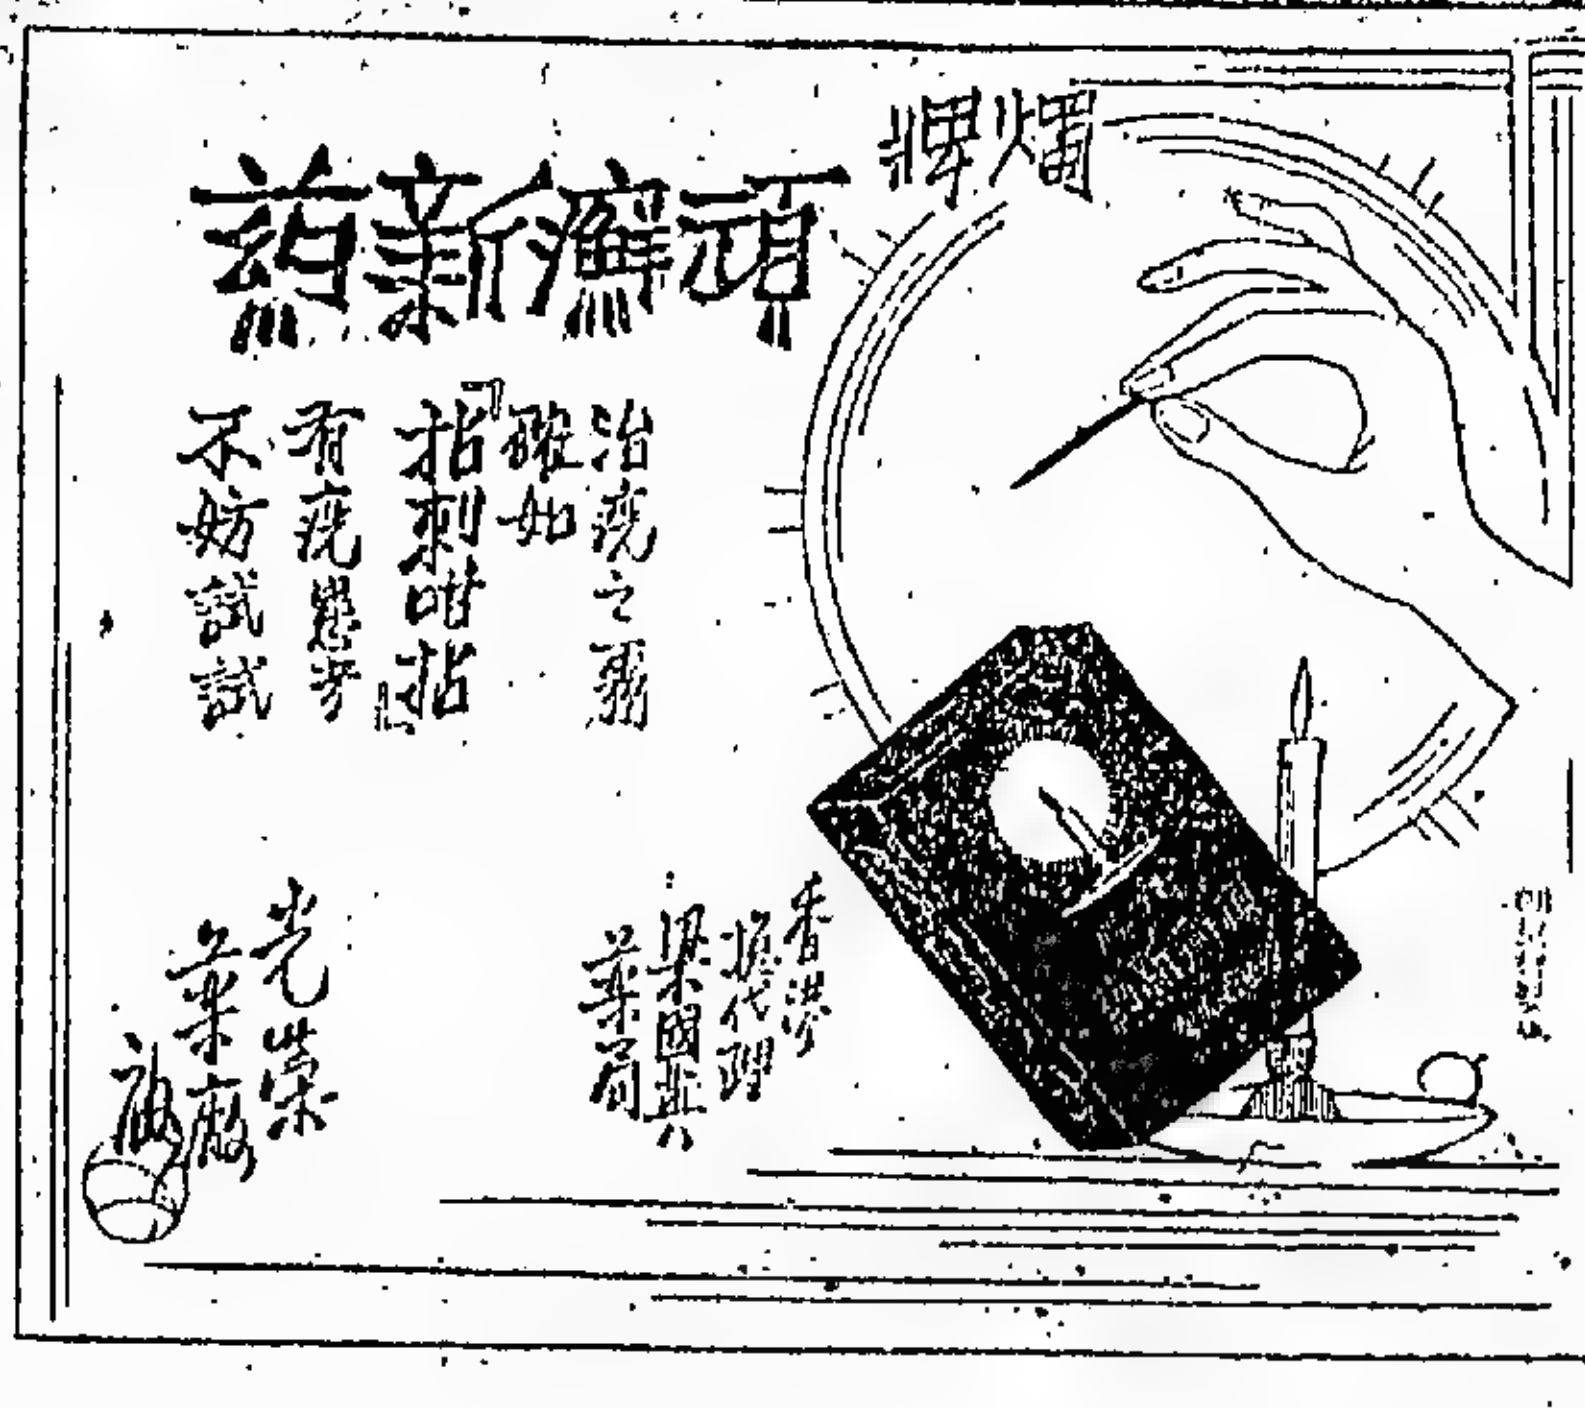 燭牌
頑癬新葯
治疣之霸
確如
「拈刺咁拈」
有疣患者
不妨試試
香港
總代理
梁國英
藥局
光榮
藥廠